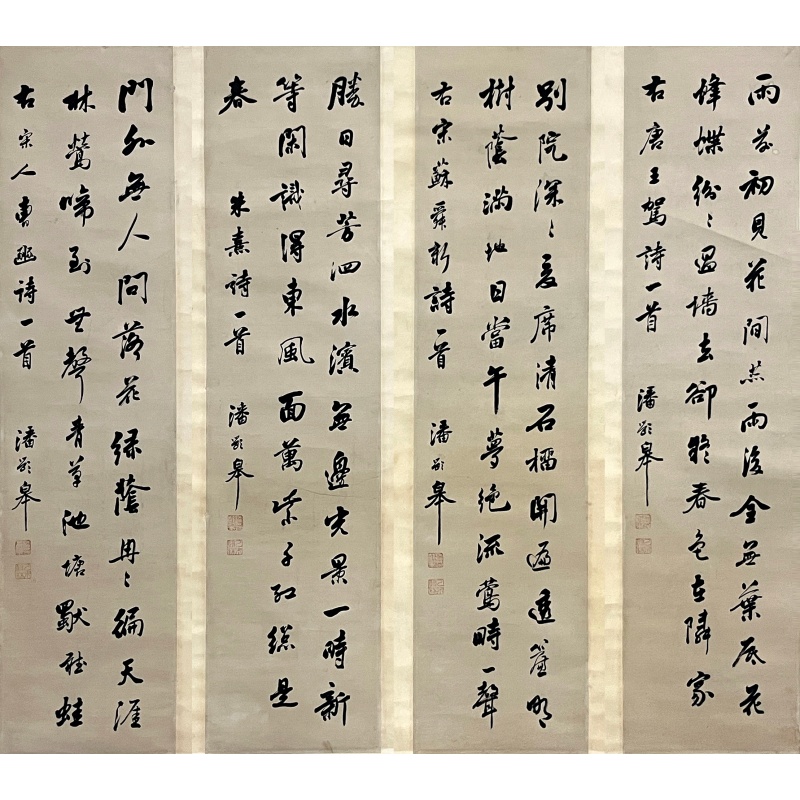 雨前初見花間蕊雨後全無葉底花
蜂蝶紛〻過墻去卻疑春色在隣家
右唐王駕詩一首 潘齡皋
別院深〻夏席清石榴開遍透簾明
樹蔭滿地日當午夢絶流鶯時一聲
右宋蘇舜欽詩一首 潘齡皋
勝日尋芳泗水濱無邊光景一時新
等閑識得東風面萬紫千紅總是
春 朱熹詩一首 潘齡皋
門外無人問落花緑蔭冉〻徧天涯
林鶯啼到無聲青草池塘獨聽蛙
右宋人曹豳詩一首 潘齡皋